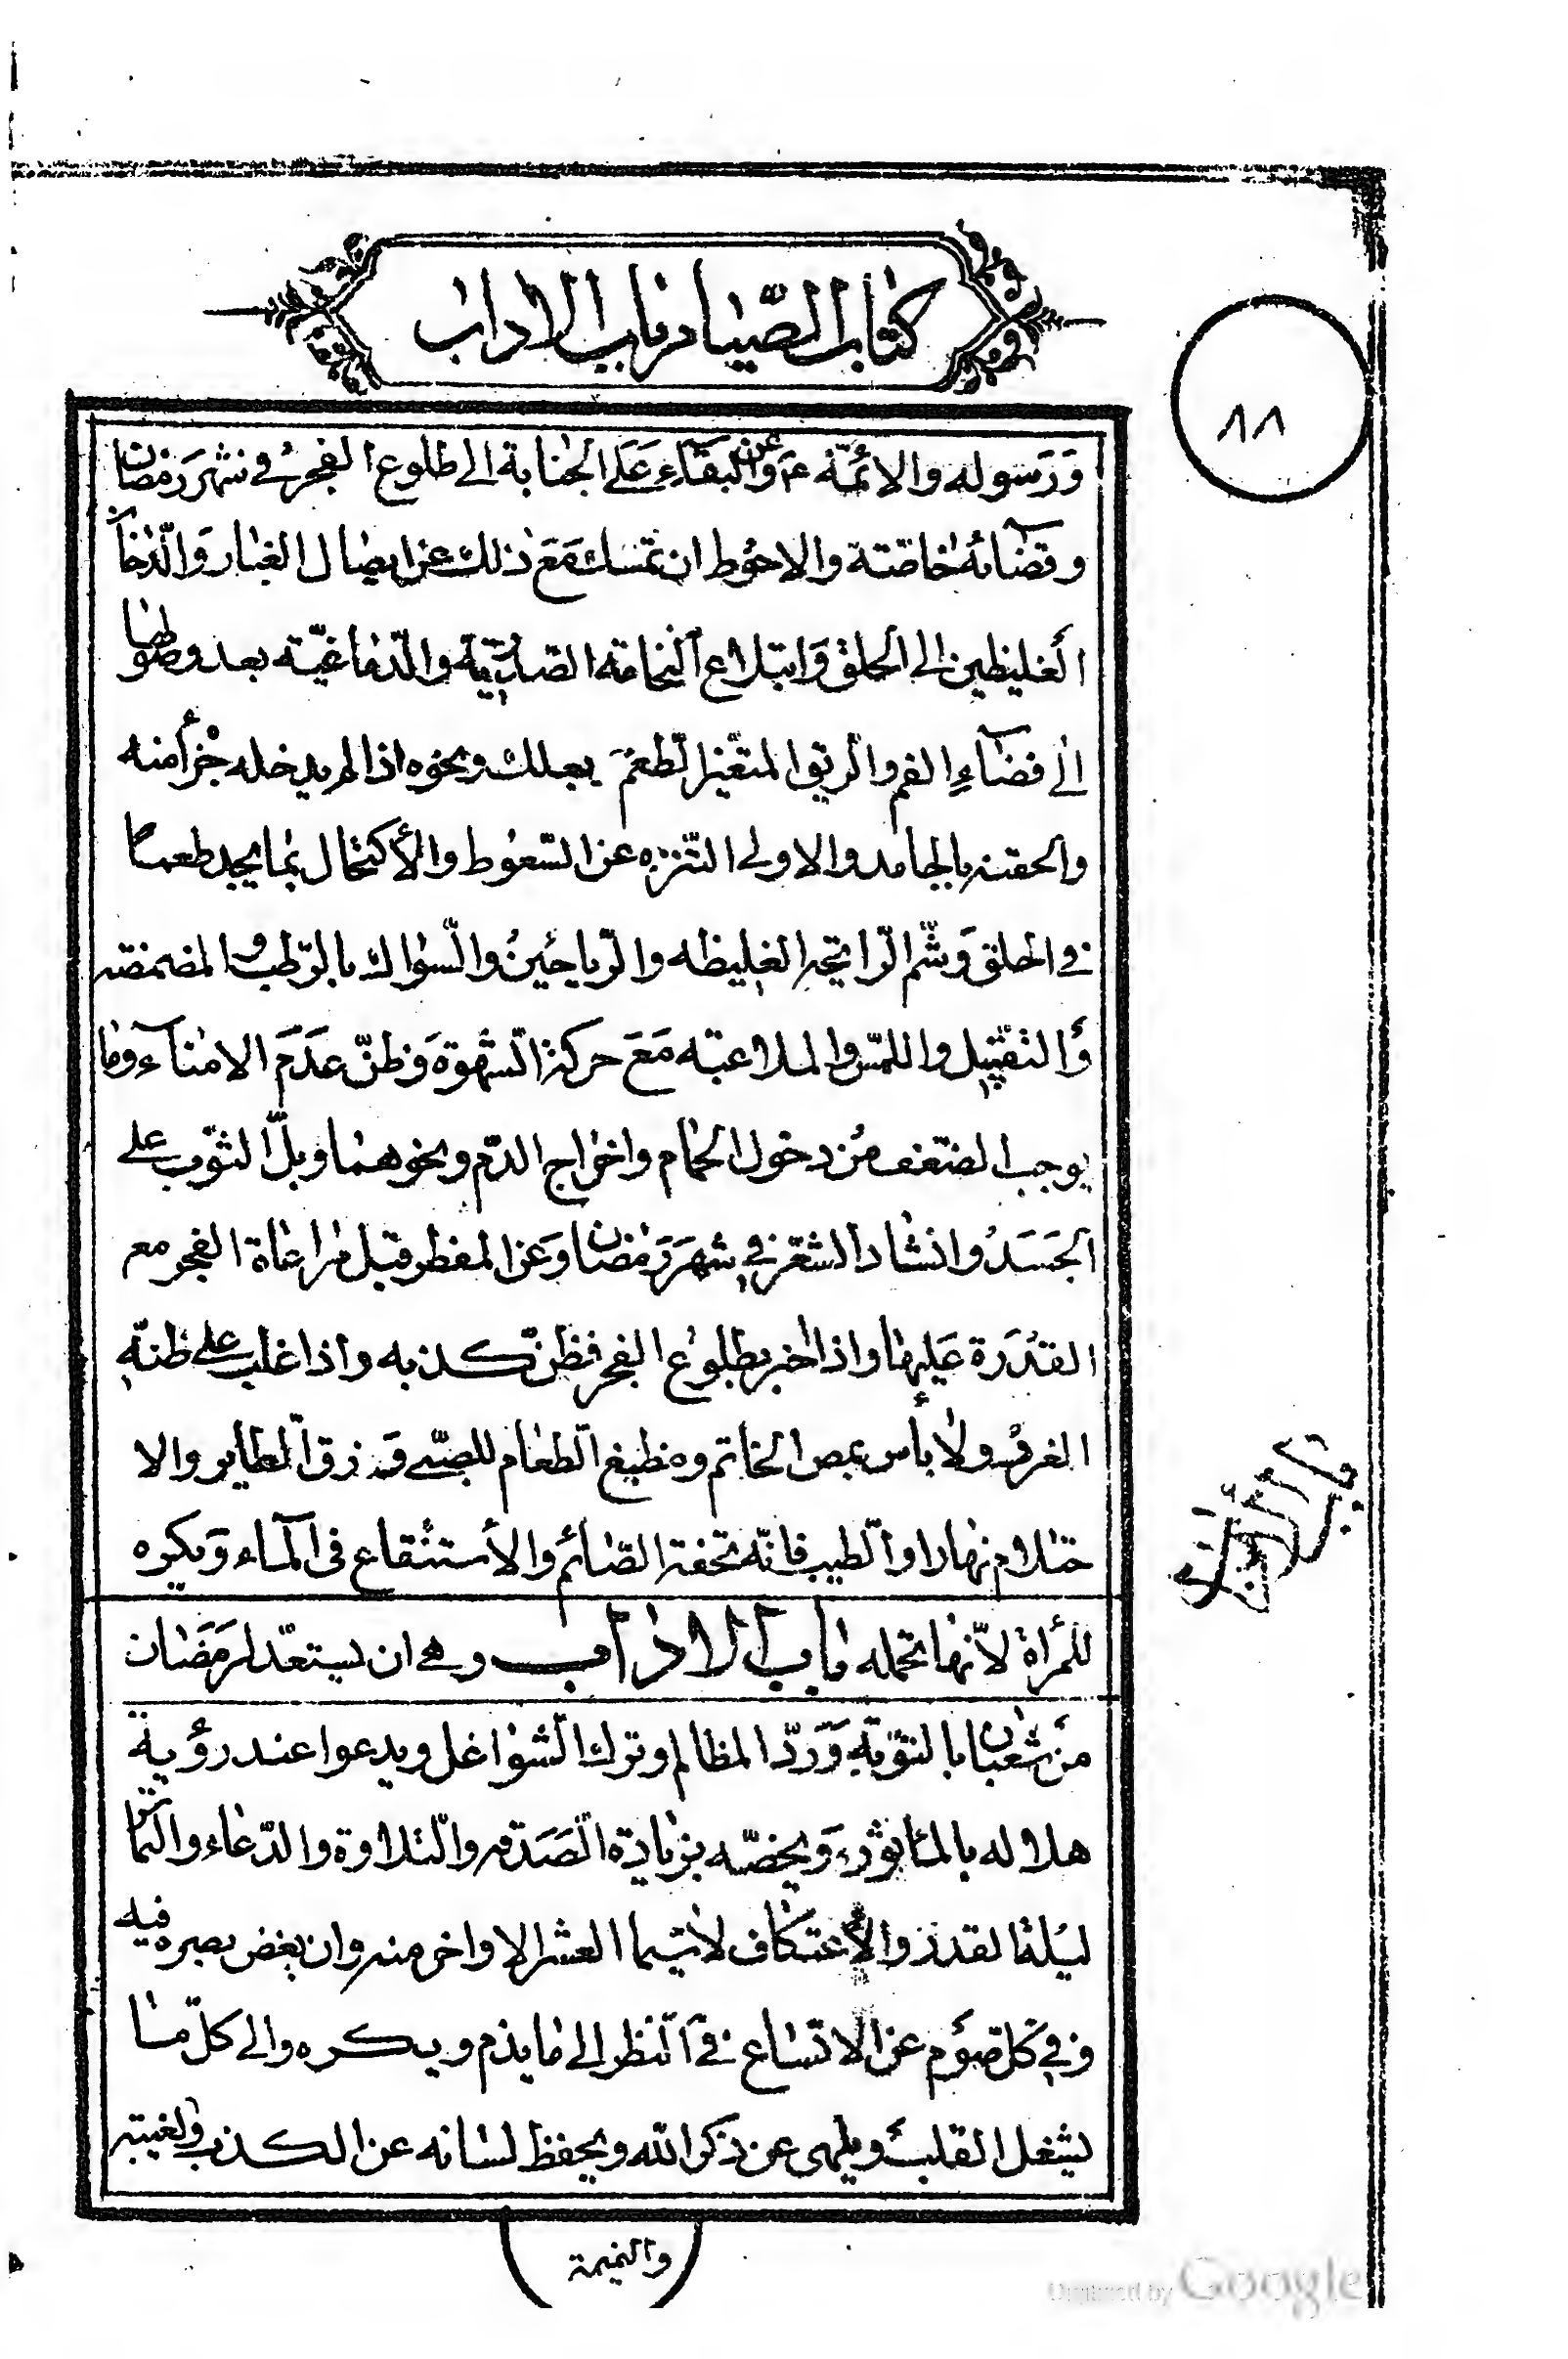 كتاب الصّيام باب الاداب
٨٨
وَرَسوله والائمّة ع وَعن البقاءِ عَلَى الجنابة الى طلوع الفجر فى شهر رمضان
وقضائه خاصّة والاحوط ان تمسك مَعَ ذلك عن ايصال الغبار وَالدّخان
الغليظين الى الحلق وَابتلاع النخامة الصّدريّة والدّماغيّة بعد وصولها
الى فضاءِ الفم والريق المتغيّر الطعم بعلك ونحوه اذا لم يدخله جزأ منه
والحقنة بالجامد والاولى التنزه عن السّعوط والأكتحال بما يجد طعما
فى الحلق وَشمّ الرّايحة الغليظه والرّياحين والسّواك بالرّطب والمضمضه
وَالتقبيل واللمس والملاعبة مَعَ حركة الشّهوة وَظنّ عدَمَ الامناء وما
يوجب الضّعف من دخول الحمام واخراج الدّم ونحوهما وبلّ الثوب على
الجَسَد وانشاد الشعر فى شهر رَمضان وَعن المفطر قبل مراعاة الفجر مع
القدرَة عَليها واذا اخبر بطلوع الفجر فظنّ كذبه واذا غلب على ظنّه
الغروب ولا بأس بمص الخاتم ومضغ الطعام للصبّى وَزق الطاير والا
حتلام نهارا والطيب فانّه تحفة الصّائم والأستنقاع فى الماء وَيكره
للمرأة لانّها تحمله باب الاداب وهى ان يستعدّ لرمَضان
من شعبان بالتوبة وَرَدّ المظالم وترك الشواغل ويدعوا عند رؤية
هلاله بالمأثور وَيخصّه بزيادة الصَدَقه والتلاوة والدّعاء والتماس
ليلة القدر والأعتكاف لا سيّما العشر الاواخر منه وان يغض بصره فيه
وَفى كلّ صوم عن الاتساع فى النظر الى ما يذم ويكره والى كلّ ما
يشغل القلب ويلهى عن ذكر الله ويحفظ لسانه عن الكذب والغيبة
والنميمة
باب الاداب
Digitized by Google